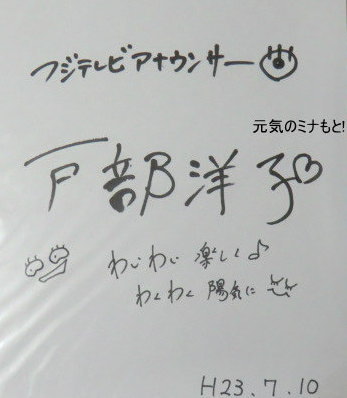 フジテレビアナウンサー
元気のミナもと!
戸部洋子
わいわい 楽しく♪
わくわく 陽気に
H23.7.10